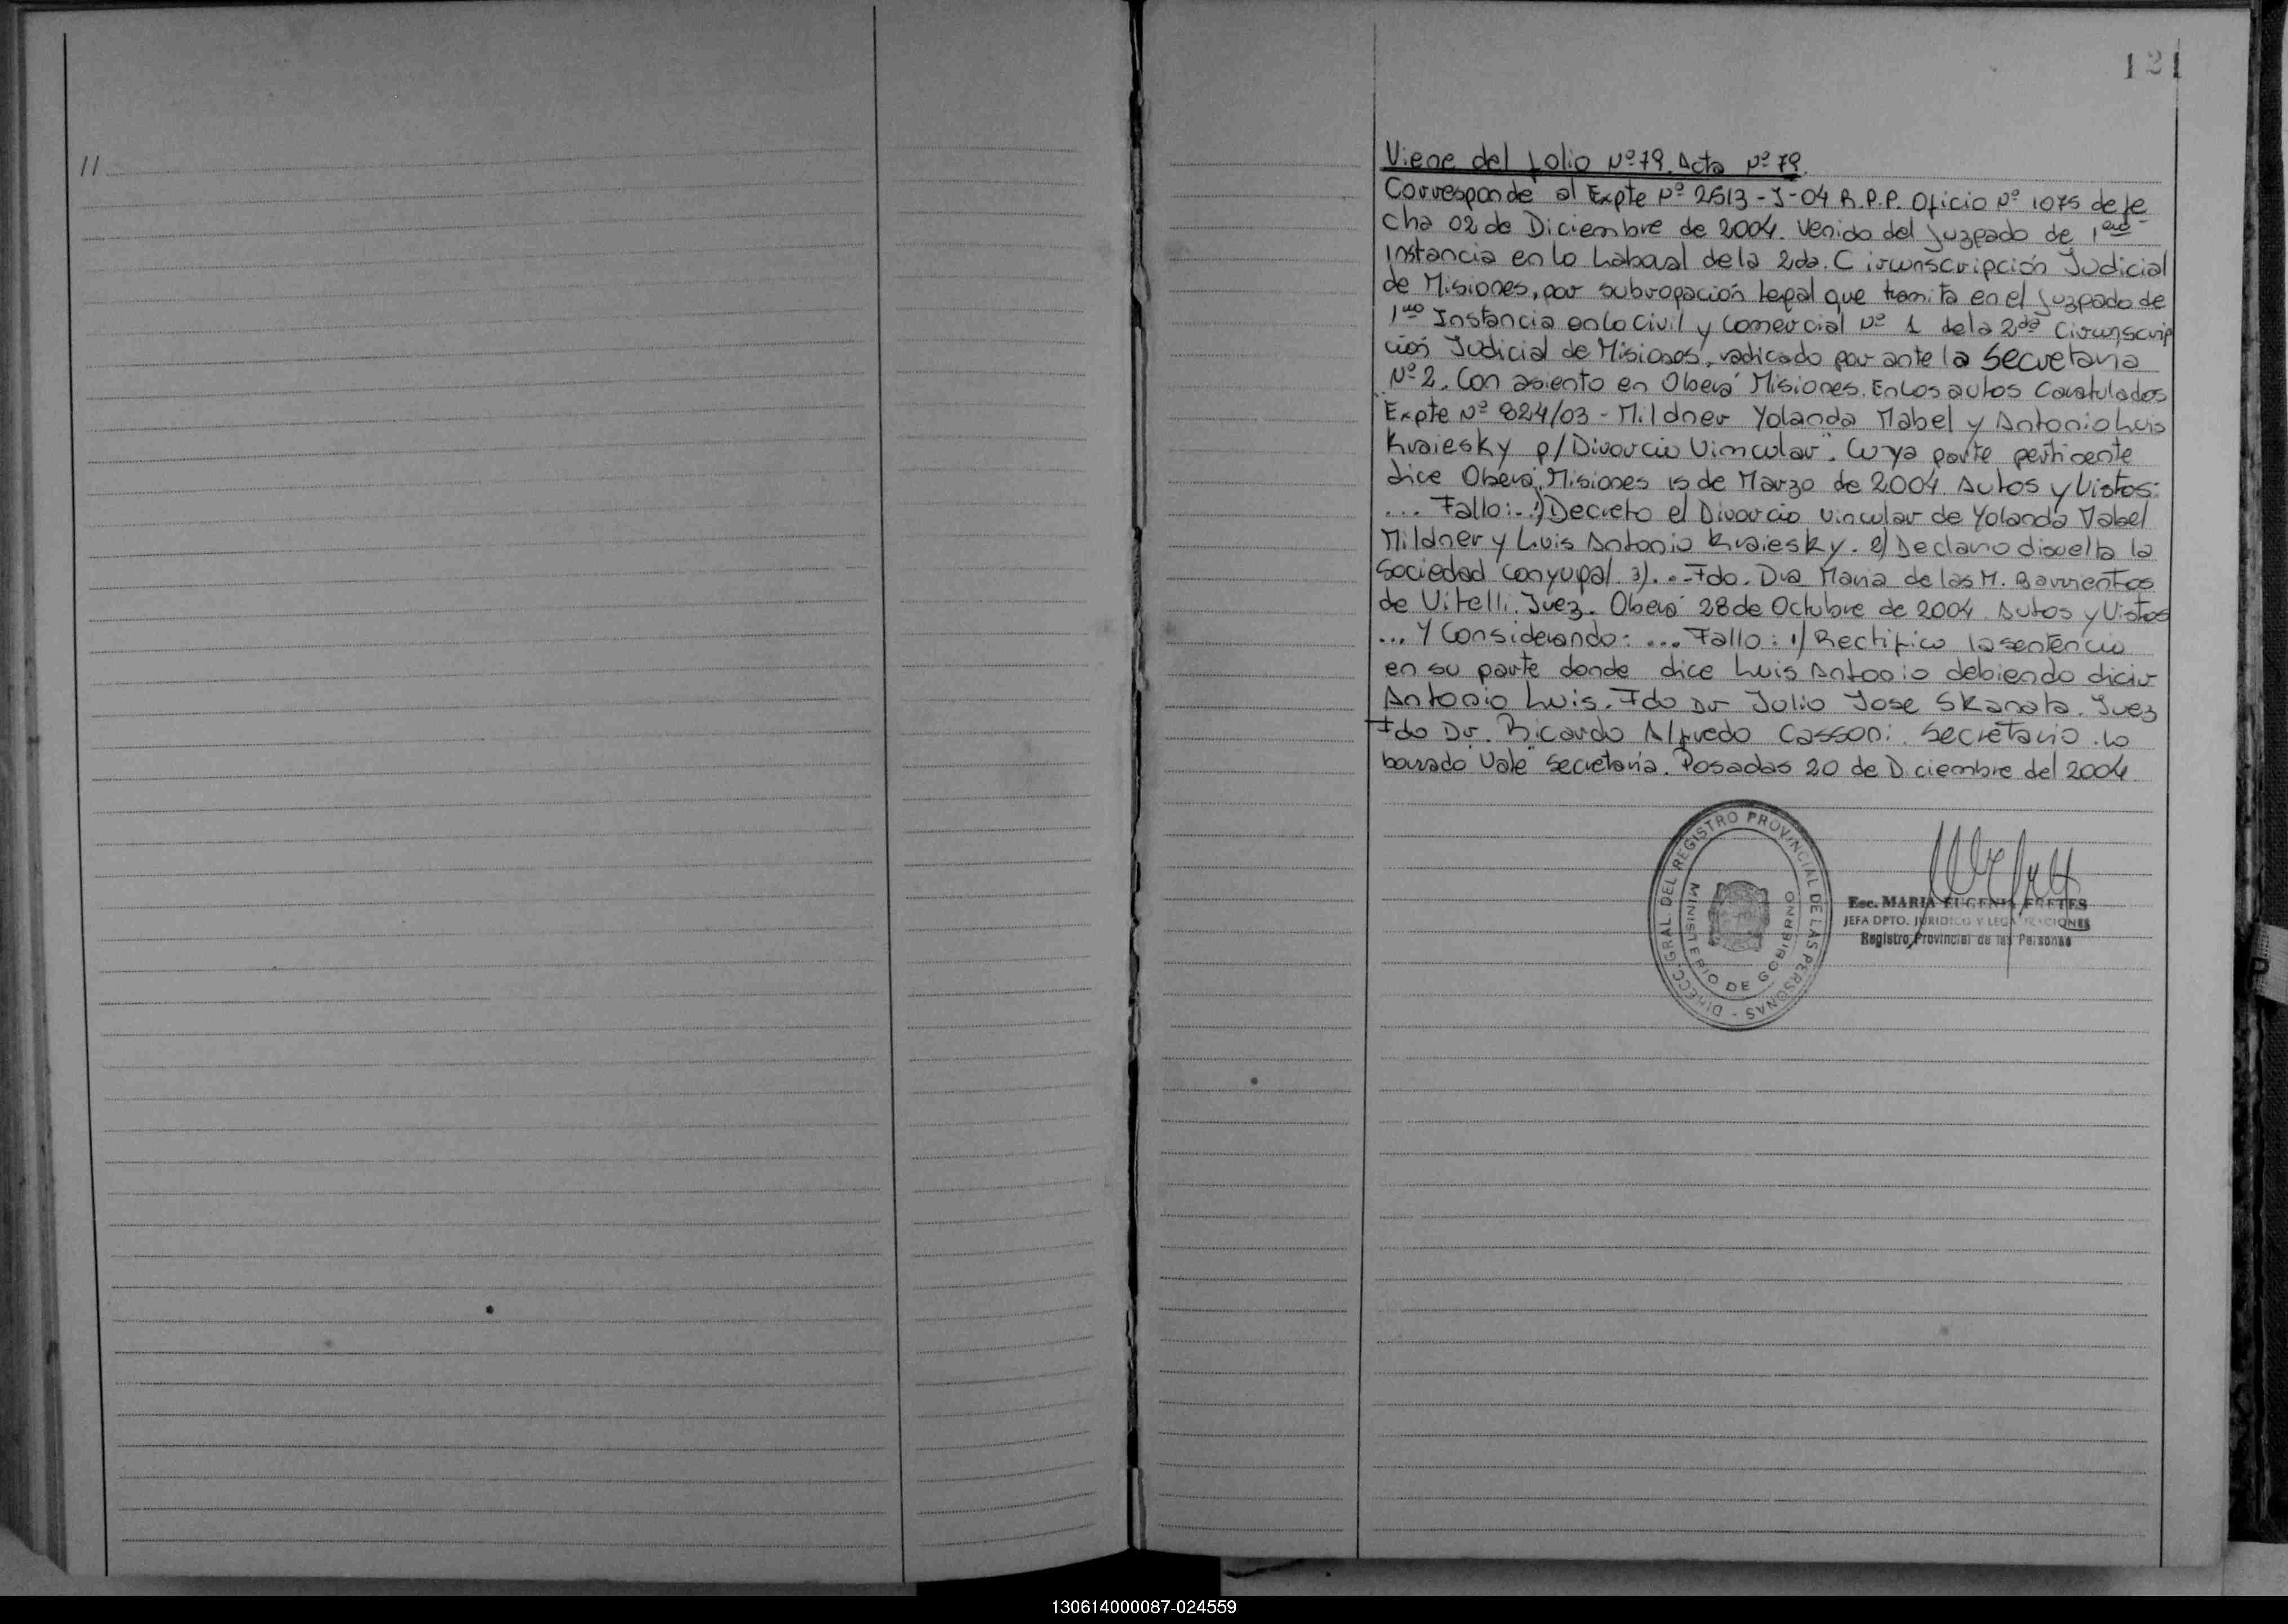 121
11
Viene del folio Nº 79. Acta Nº 79.
Corresponde al Expte Nº 2613 - J - 04 R.P.P. Oficio Nº 1075 de fe
cha 02 de Diciembre de 2004. Venido del Juzgado de 1era
Instancia en lo Laboral de la 2da. Circunscripción Judicial
de Misiones, por subrogación legal que tramita en el Juzgado de
1ra Instancia en lo Civil y Comercial Nº 1 de la 2da Circunscrip
ción Judicial de Misiones, radicado por ante la Secretaria
Nº 2. Con asiento en Oberá Misiones. En los autos Caratulados
"Expte Nº 824/03 - Mildner Yolanda Mabel y Antonio Luis
Kraiesky p/ Divorcio Vimcular". Cuya parte pertinente
dice Oberá, Misiones 15 de Marzo de 2004. Autos y Vistos:
... Fallo: - 1) Decreto el Divorcio vincular de Yolanda Mabel
Mildner y Luis Antonio Kraiesky. 2) Declaro disuelta la
sociedad conyugal. 3)... Fdo. Dra Maria de las M. Barrientos
de Vitelli. Juez. Oberá 28 de Octubre de 2004. Autos y Vistos
... Y Considerando: ... Fallo: 1) Rectifico la sentencia
en su parte donde dice Luis Antonio debiendo dicir
Antonio Luis. Fdo Dr Julio Jose Skanata. Juez
Fdo Dr. Ricardo Alfredo Cassoni. Secretario. Lo
borrado "Vale" Secretaria. Posadas 20 de Diciembre del 2004
DIRECC. GRAL. DEL REGISTRO PROVINCIAL DE LAS PERSONAS -
MINISTERIO DE GOBIERNO
Esc. MARIA EUGENIA FRETES
JEFA DPTO. JURIDICO Y LEGALIZACIONES
Registro Provincial de las Personas
130614000087-024559